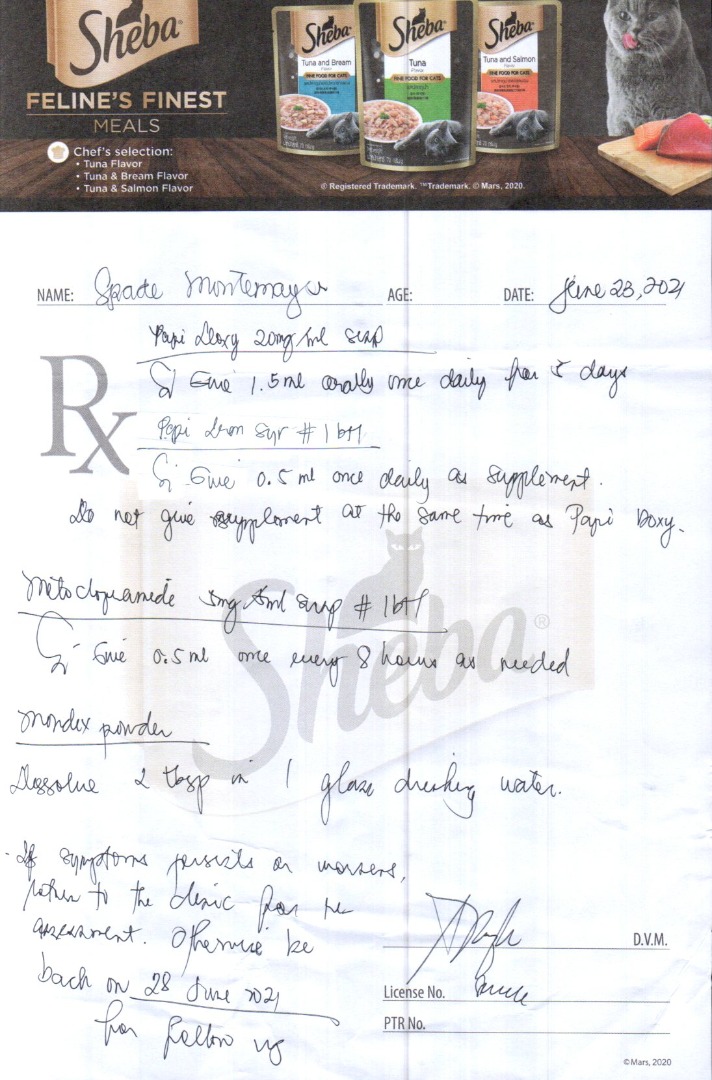 Sheba®
FELINE'S FINEST
MEALS
Chef's selection:
• Tuna Flavor
• Tuna & Bream Flavor
• Tuna & Salmon Flavor
Sheba
Tuna and Bream
Flavor
FINE FOOD FOR CATS
Sheba
Tuna
Flavor
FINE FOOD FOR CATS
Sheba
Tuna and Salmon
Flavor
FINE FOOD FOR CATS
® Registered Trademark. ™Trademark. © Mars, 2020.
NAME: Spade Montemayor AGE: DATE: June 23, 2021
Papi Doxy 20mg/ml
Rx
Give 1.5 ml orally once daily for 5 days
Papi Iron Syr # 1 btl
Give 0.5 ml once daily as supplement.
Do not give supplement at the same time as Papi Doxy.
Metoclopramide 5mg/5ml # 1 btl
Give 0.5 ml once every 8 hours as needed
Sheba®
Mondex powder
Dissolve 2 tbsp in 1 glass drinking water.
- If symptoms persists or worsens,
return to the clinic for re
assessment. Otherwise be
back on 28 June 2021
for follow up
D.V.M.
License No.
PTR No.
©Mars, 2020